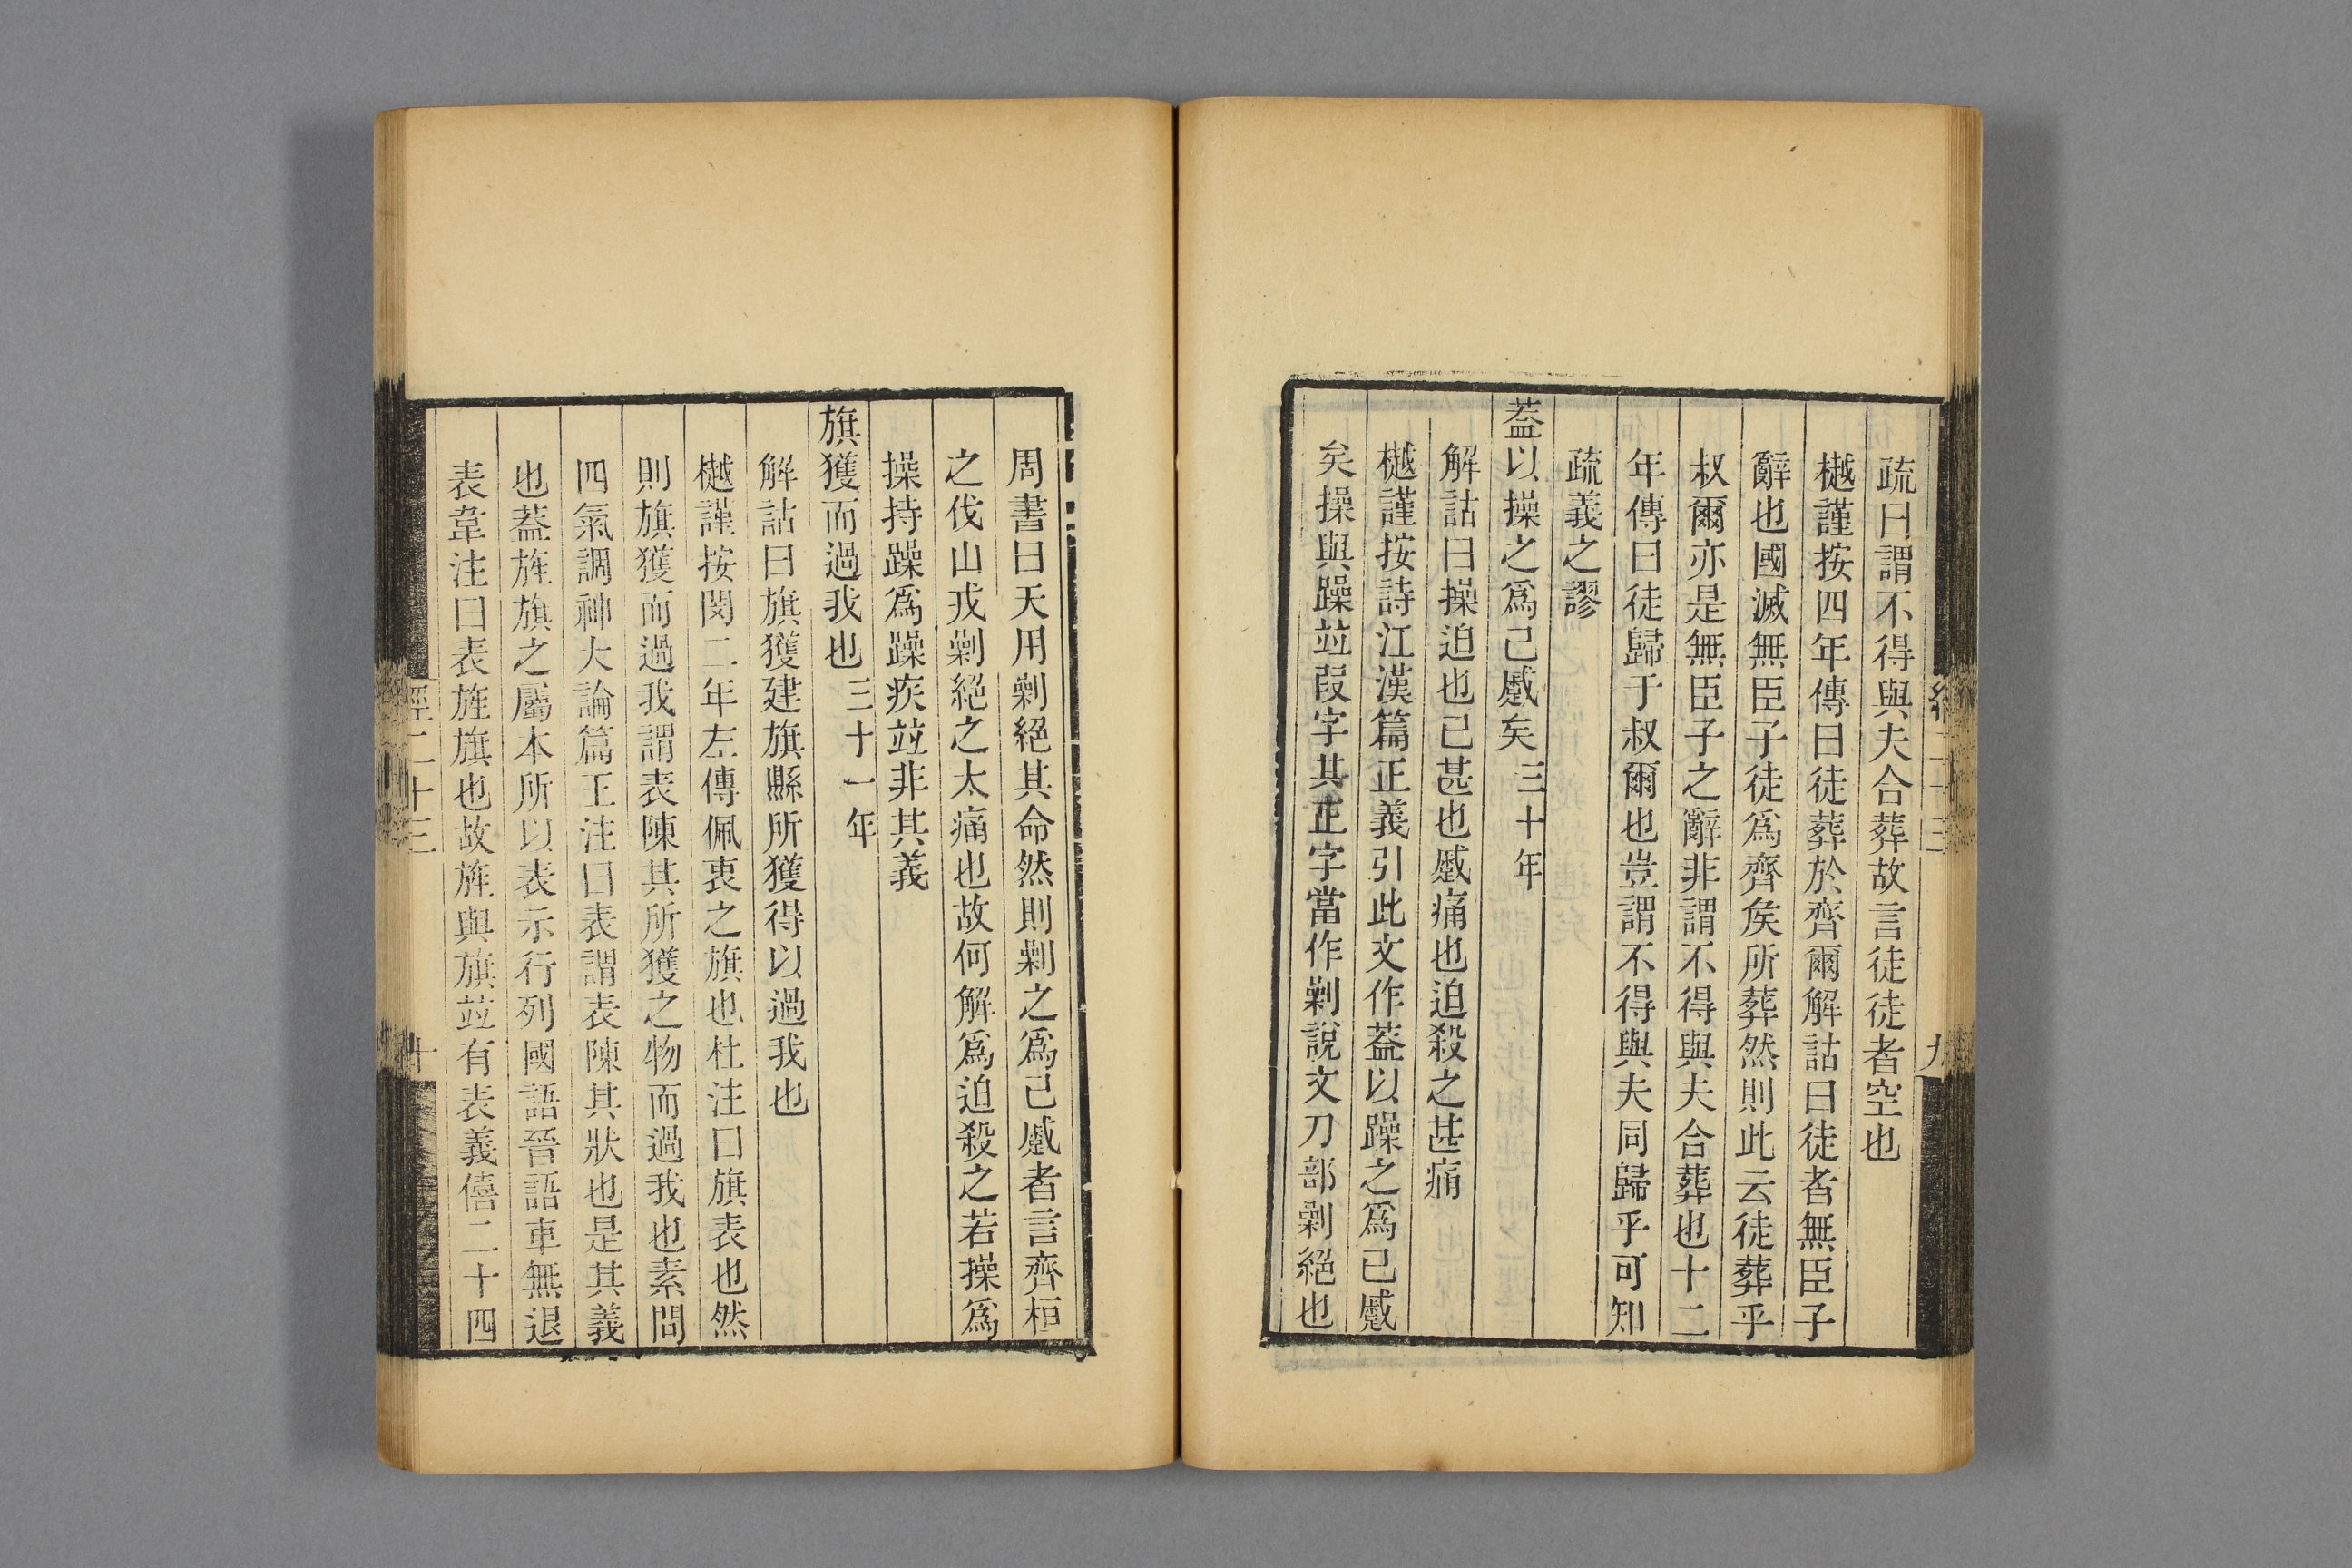 疏曰謂不得與夫合葬故言徒徒者空也
樾謹按四年傳曰徒葬於齊爾解詁曰徒者無臣子
辭也國滅無臣子徒爲齊矦所葬然則此云徒葬乎
叔爾亦是無臣子之辭非謂不得與夫合葬也十二
年傳曰徒歸于叔爾也豈謂不得與夫同歸乎可知
疏義之謬
葢以操之爲已蹙矣三十年
解詁曰操迫也已甚也蹙痛也迫殺之甚痛
樾謹按詩江漢篇正義引此文作葢以躁之爲已蹙
矣操與躁竝叚字其正字當作剿說文刀部剿絕也
周書曰天用剿絕其命然則剿之爲已蹙者言齊桓
之伐山戎剿絕之太痛也故何解爲迫殺之若操爲
操持躁爲躁疾竝非其義
旗獲而過我也三十一年
解詁曰旗獲建旗縣所獲得以過我也
樾謹按閔二年左傳佩衷之旗也杜注曰旗表也然
則旗獲而過我謂表陳其所獲之物而過我也素問
四氣調神大論篇王注曰表謂表陳其狀也是其義
也葢旌旗之屬本所以表示行列國語晉語車無退
表韋注曰表旌旗也故旌與旗竝有表義僖二十四
經二十三
十